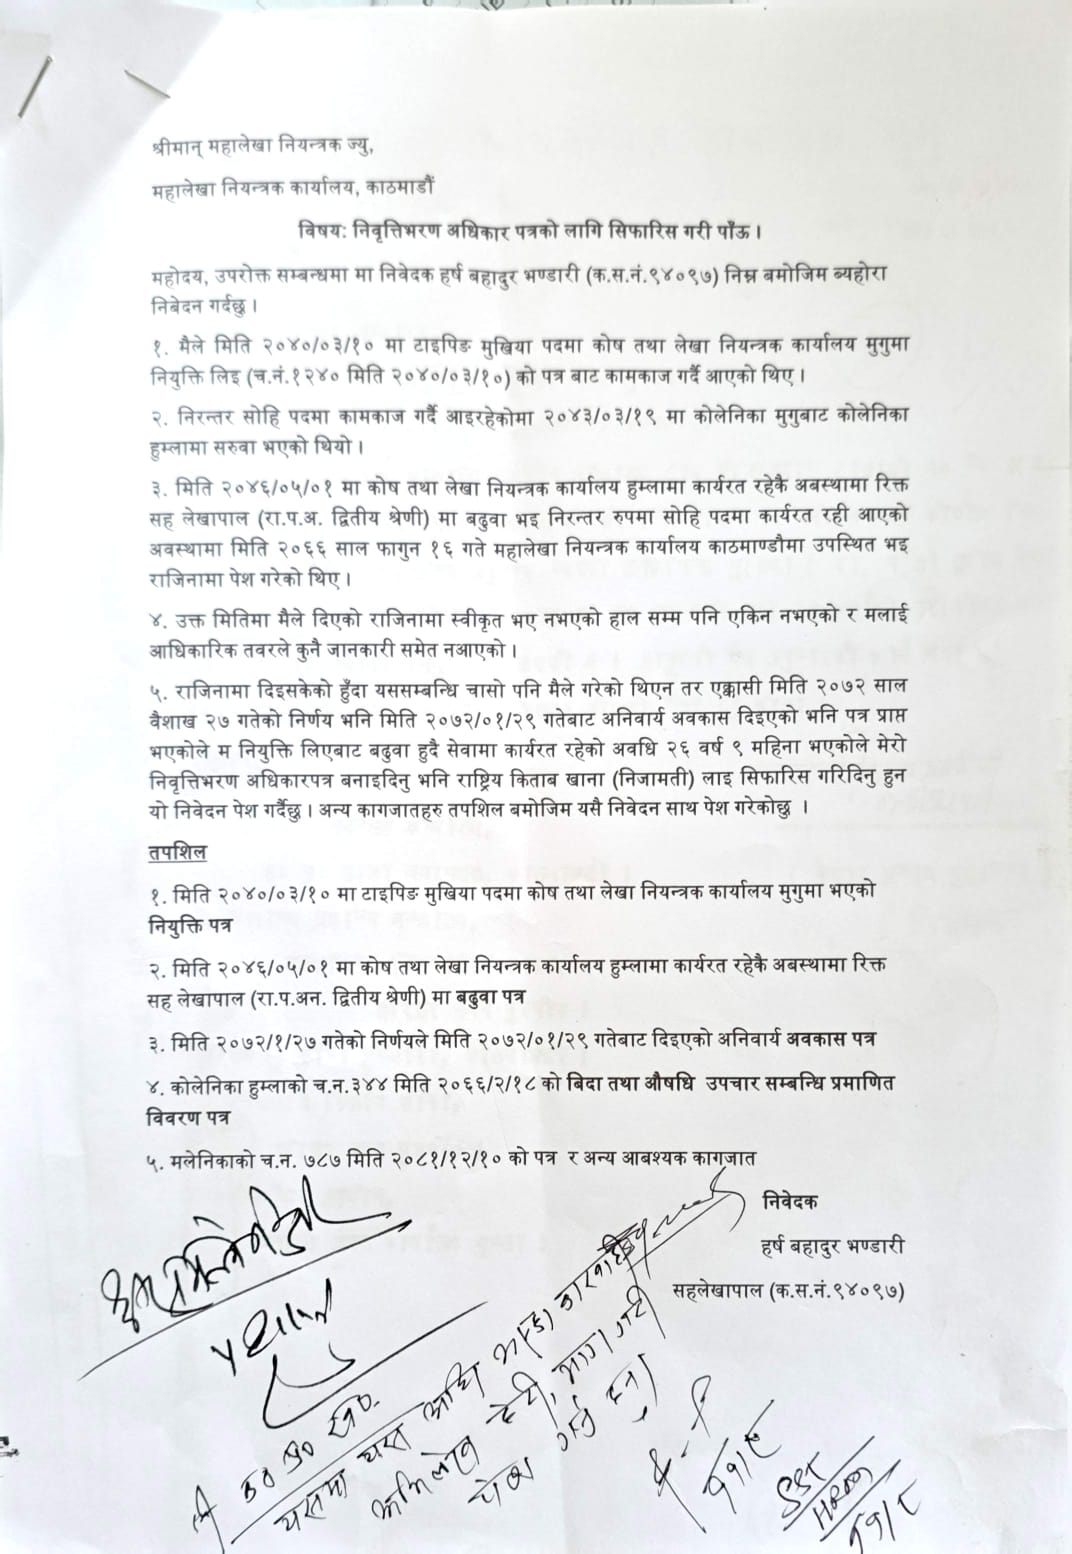 श्रीमान् महालेखा नियन्त्रक ज्यु,
महालेखा नियन्त्रक कार्यालय, काठमाडौं
विषय: निवृत्तिभरण अधिकार पत्रको लागि सिफारिस गरी पाँऊ ।
महोदय, उपरोक्त सम्बन्धमा मा निवेदक हर्ष बहादुर भण्डारी (क.स.नं.९४०९७) निम्न बमोजिम ब्यहोरा
निबेदन गर्दछु ।
१. मैले मिति २०४०/०३/१० मा टाइपिङ मुखिया पदमा कोष तथा लेखा नियन्त्रक कार्यालय मुगुमा
नियुक्ति लिइ (च.नं.१२४० मिति २०४०/०३/१०) को पत्र बाट कामकाज गर्दै आएको थिए ।
२. निरन्तर सोहि पदमा कामकाज गर्दै आइरहेकोमा २०४३/०३/१९ मा कोलेनिका मुगुबाट कोलेनिका
हुम्लामा सरुवा भएको थियो ।
३. मिति २०४६/०५/०१ मा कोष तथा लेखा नियन्त्रक कार्यालय हुम्लामा कार्यरत रहेकै अबस्थामा रिक्त
सह लेखापाल (रा.प.अ. द्वितीय श्रेणी) मा बढुवा भइ निरन्तर रुपमा सोहि पदमा कार्यरत रही आएको
अवस्थामा मिति २०६६ साल फागुन १६ गते महालेखा नियन्त्रक कार्यालय काठमाण्डौमा उपस्थित भइ
राजिनामा पेश गरेको थिए ।
४. उक्त मितिमा मैले दिएको राजिनामा स्वीकृत भए नभएको हाल सम्म पनि एकिन नभएको र मलाई
आधिकारिक तवरले कुनै जानकारी समेत नआएको ।
५. राजिनामा दिइसकेको हुँदा यससम्बन्धि चासो पनि मैले गरेको थिएन तर एक्कासी मिति २०७२ साल
वैशाख २७ गतेको निर्णय भनि मिति २०७२/०१/२९ गतेबाट अनिवार्य अवकास दिइएको भनि पत्र प्राप्त
भएकोले म नियुक्ति लिएबाट बढुवा हुदै सेवामा कार्यरत रहेको अवधि २६ वर्ष ९ महिना भएकोले मेरो
निवृत्तिभरण अधिकारपत्र बनाइदिनु भनि राष्ट्रिय किताब खाना (निजामती) लाइ सिफारिस गरिदिनु हुन
यो निवेदन पेश गर्दैछु । अन्य कागजातहरु तपशिल बमोजिम यसै निवेदन साथ पेश गरेकोछु ।
तपशिल
१. मिति २०४०/०३/१० मा टाइपिङ मुखिया पदमा कोष तथा लेखा नियन्त्रक कार्यालय मुगुमा भएको
नियुक्ति पत्र
२. मिति २०४६/०५/०१ मा कोष तथा लेखा नियन्त्रक कार्यालय हुम्लामा कार्यरत रहेकै अबस्थामा रिक्त
सह लेखापाल (रा.प.अन. द्वितीय श्रेणी) मा बढुवा पत्र
३. मिति २०७२/१/२७ गतेको निर्णयले मिति २०७२/०१/२९ गतेबाट दिइएको अनिवार्य अवकास पत्र
४. कोलेनिका हुम्लाको च.न.३४४ मिति २०६६/२/१८ को बिदा तथा औषधि उपचार सम्बन्धि प्रमाणित
विवरण पत्र
५. मलेनिकाको च.न. ७८७ मिति २०८१/१२/१० को पत्र र अन्य आबश्यक कागजात
निवेदक
हर्ष बहादुर भण्डारी
सहलेखापाल (क.स.नं.९४०९७)